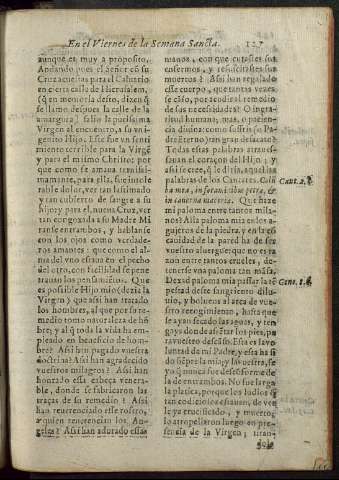 En el Viernes de la Semana Sancta.
aunque es muy a proposito,
Andando pues el Señor cõ su
Cruz acuestas para el Caluario
en cierta calle de Hierusalem,
(q̃ en memoria desto, dizen q̃
se llamo despues la calle de la
amargura) salio la purissima
Virgen al encuentro, a su vni-
genito Hijo. Esse fue un senti
miento terrible para la Virgẽ
y para el mismo Christo: por
que como se aman
mamente, para ella, fue intole
rable dolor, ver tan lastimado
y tan cubierto de sangre a su
hijo: y para el, nueua Cruz, ver
tan congoxada a su Madre Mi
ranse entrambos, y hablanse
con los ojos como verdade-
ros amantes: que como el al-
ma del vno estaua en el pecho
del otro, con facilidad se pene
trauan los pensamientos. Que
es possible Hijo mio (dezia la
Virgen) que assi han tratado
los hombres, al que por su re-
medio tomo naturaleza de hõ
bre; y al q̃ toda la vida ha em-
pleado en beneficio de hom-
bres? Assi han pagado vuestra
doctrina? Assi han agradecido
vuestros milagros? Assi han
honrado essa cabeça venera-
ble, donde se fabricaron las
traças de su remedio? Assi
han reuerenciado esse rostro,
a quien reuerencian los An-
geles? Assi han adorado essas
manos, con que curastes sus
enfermos, y resuscitastes sus
muertos? Assi han regalado
esse cuerpo, que tantas vezes
se cãso, por acudir al remedio
de sus necesidades? O ingra-
titud humana; mas, o pacien-
cia diuina: como sufris (o Pa-
dre Eterno) tan gran desacato?
Todas estas palabras atraues-
sauan el coraçon del Hijo; y
assi se cree, q̃ le diria, aquellas
palabras de los Cantares. Colũ
ba mea, in foraminibus petræ, &
in cauerna maceriæ. Que haze
mi paloma entre tantos mila-
nos? Alla paloma mia en los a-
gujeros de la piedra, y en la con
cauidad de la pared ha de ser
vuestro aluergue: que no es ra
zon entre tantos crueles, de-
tenerse vna paloma tan mãsa.
Dexad paloma mia passar la tẽ
pestad deste sangriento dilu-
uio, y bolueus al arca de vue-
stro recogimiento, hasta que
se ayan secado las aguas, y ten-
gays donde assẽtar los pies, pa-
ra vuestro descãso. Essa es la vo
luntad de mi Padre, y essa ha si
do siẽpre la mia, y la vuestra, se
yo q̃ nunca fue desconforme de
la de entrambos. No fue larga
la platica, porque los Iudios q̃
tan codiciosos estauan, de ver
le ya crucificado, y muerto;
le atropellaron luego en pre-
sencia de la Virgen;
Cant. 2.
Genes. 8.